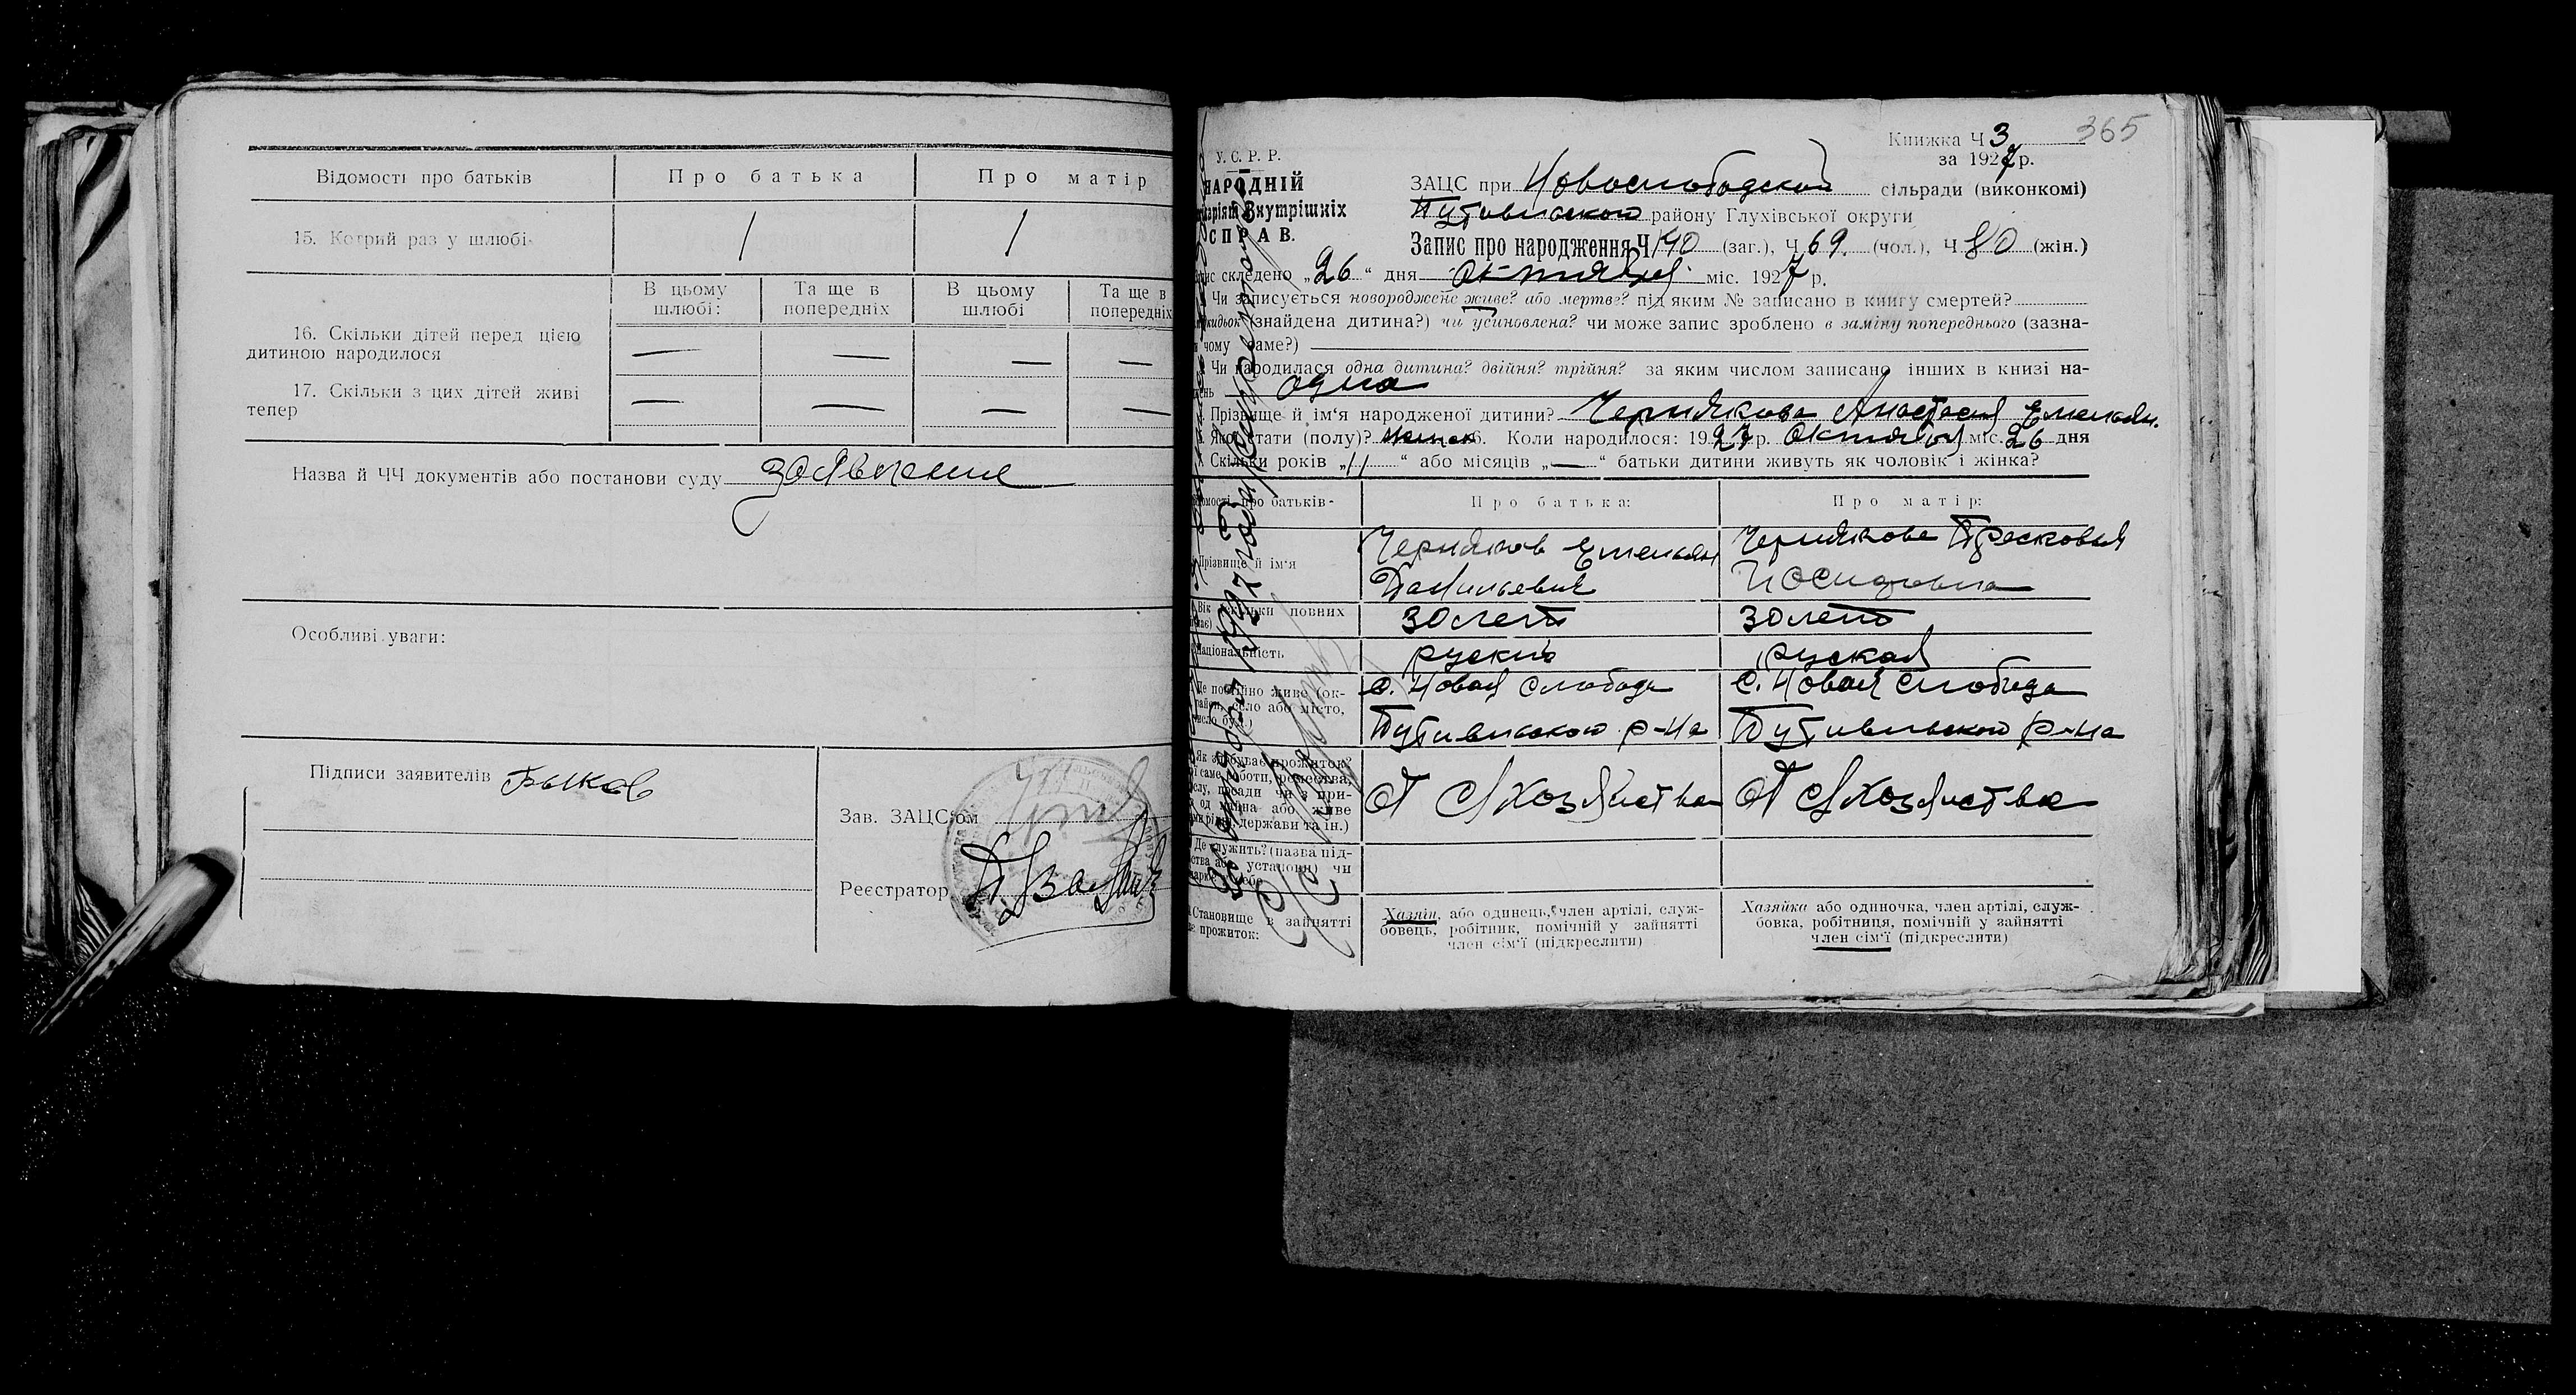 Відомості про батьків
Про батька
Про матір
15. Котрий раз у шлюбі
1
1
В цьому шлюбі:
Та ще в попередніх
В цьому шлюбі
Та ще в попередніх
16. Скільки дітей перед цією
дитиною народилося
— — — —
17. Скільки з цих дітей живі
тепер
— — — —
Назва й ЧЧ документів або постанови суду заявление
Особливі уваги:
Підписи заявителів Быков
Зав. ЗАЦС'ом
Реєстратор
365
Книжка Ч 3
за 1927 р.
У. С. Р. Р.
НАРОДНІЙ
Внутрішніх
СПРАВ.
ЗАЦС при Новослободской сільради (виконкомі)
Путивльского району Глухівської округи
Запис про народження Ч 140 (заг.), Ч 69. (чол.), Ч 80 (жін.)
складено „26“ дня октября міс. 1927 р.
Чи записується новороджене живе? або мертве? під яким № записано в книгу смертей?
(знайдена дитина?) чи усиновлена? чи може запис зроблено в заміну попереднього (зазна-
чому саме?)
Чи народилася одна дитина? двійня? трійня? за яким числом записано інших в книзі на-
одна
Прізвище й ім'я народженої дитини? Чернякова Анастасия Емельян.
Якої стати (полу)? женск 6. Коли народилося: 1927 р. Октября міс. 26 дня
Скільки років „11“ або місяців „—“ батьки дитини живуть як чоловік і жінка?
про батьків
Про батька:
Про матір:
Прізвище й ім'я
Черняков Емельян
Данильевич
Чернякова Прасковья
Иосиповна
Вік повних
30 лет
30 лет
Національність
руский
руская
Де постійно живе (ок-
село або місто,
с. Новая Слобода
Путивльского р-на
с. Новая Слобода
Путивльского р-на
Як здобуває прожиток?
От с/хозяйства
От с/хозяйства
Де служить? (назва під-
установи) чи
Становище в зайнятті
прожиток:
Хазяїн, або одинець, член артілі, служ-
бовець, робітник, помічній у зайнятті
член сім'ї (підкреслити)
Хазяйка або одиночка, член артілі, служ-
бовка, робітниця, помічній у зайнятті
член сім'ї (підкреслити)